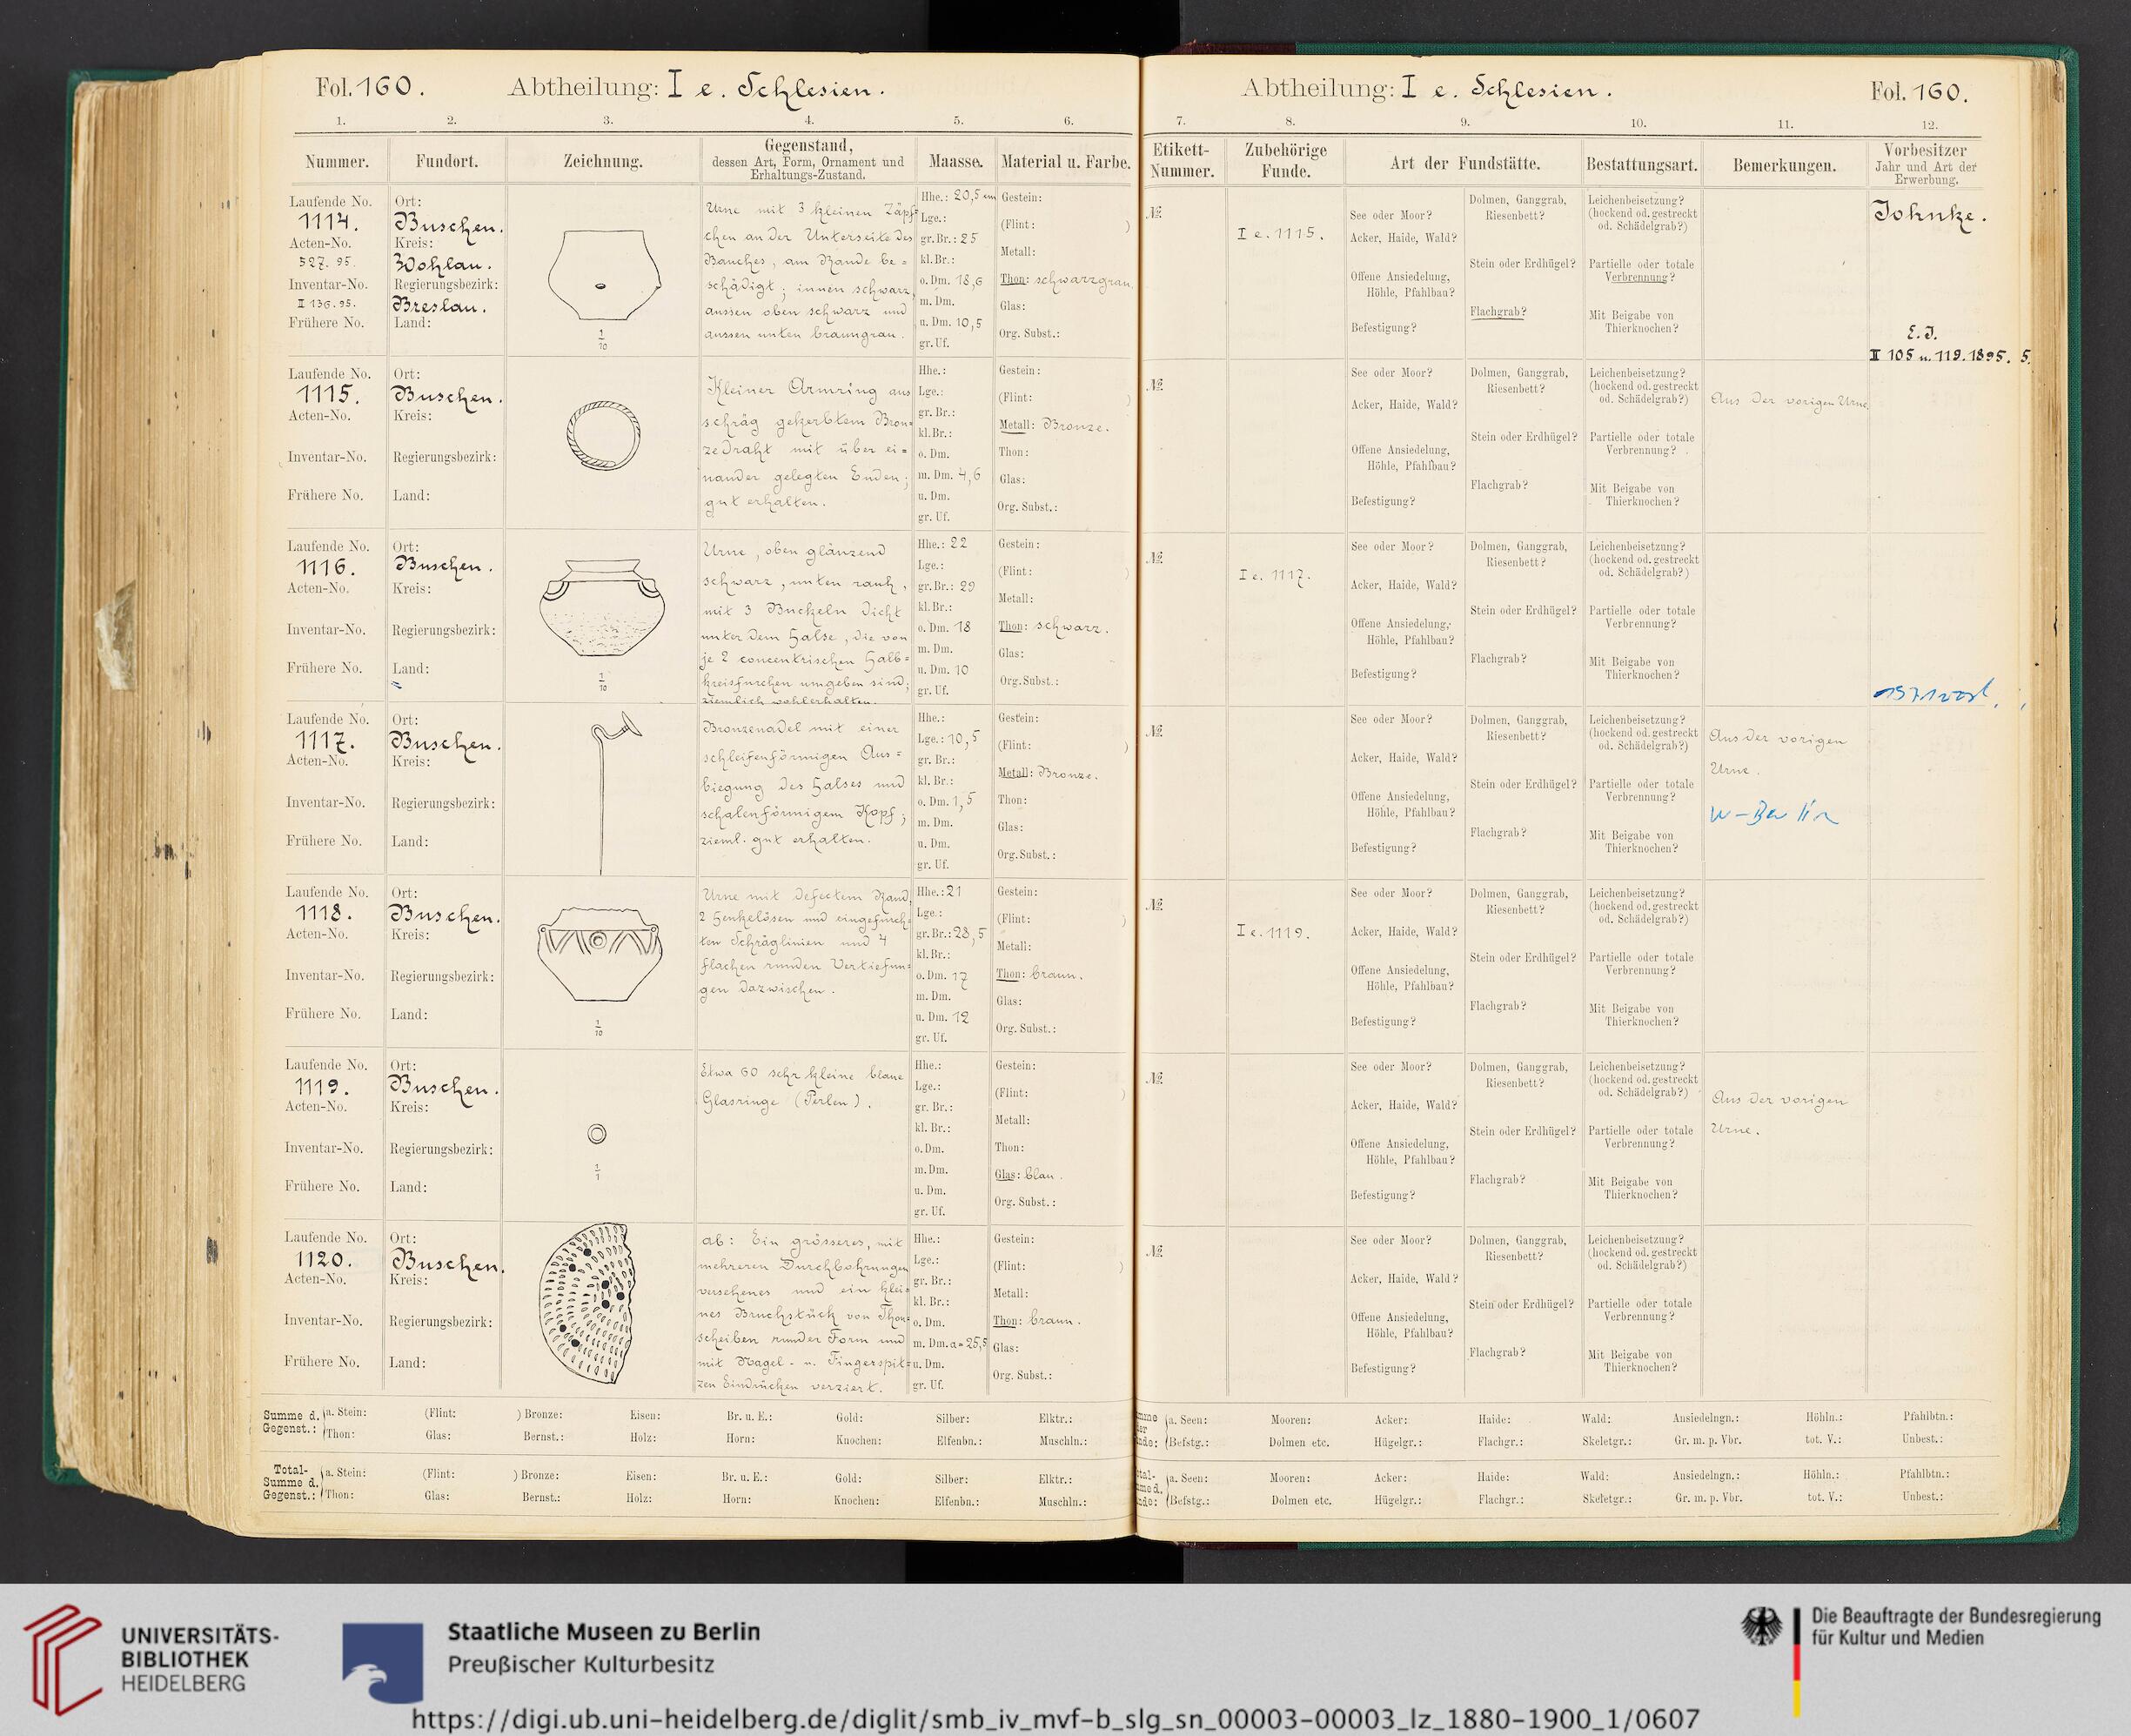 Fol. 160.
Abtheilung: I e. Schlesien.
1. 2. 3. 4. 5. 6.
Nummer. Fundort. Zeichnung. Gegenstand, dessen Art, Form, Ornament und Erhaltungs-Zustand. Maasse. Material u. Farbe.
Laufende No.
1114.
Acten-No.
527. 95.
Inventar-No.
II 136.95.
Frühere No.
Ort:
Buschen.
Kreis:
Wohlau.
Regierungsbezirk:
Breslau.
Land:
1/10
Urne mit 3 kleinen Zäpf=
chen an der Unterseite des
Bauches, am Rande be=
schädigt; innen schwarz,
aussen oben schwarz und
aussen unten braungrau.
Hhe.: 20,5 cm
Lge.:
gr. Br.: 25
kl. Br.:
o. Dm. 18,6
m. Dm.
u. Dm. 10,5
gr. Uf.
Gestein:
(Flint: )
Metall:
Thon: schwarzgrau.
Glas:
Org. Subst.:
Laufende No.
1115.
Acten-No.
Inventar-No.
Frühere No.
Ort:
Buschen.
Kreis:
Regierungsbezirk:
Land:
Kleiner Armring aus
schräg gekerbtem Bron=
zedraht mit über ei=
nander gelegten Enden;
gut erhalten.
Hhe.:
Lge.:
gr. Br.:
kl. Br.:
o. Dm.
m. Dm. 4,6
u. Dm.
gr. Uf.
Gestein:
(Flint: )
Metall: Bronze.
Thon:
Glas:
Org. Subst.:
Laufende No.
1116.
Acten-No.
Inventar-No.
Frühere No.
Ort:
Buschen.
Kreis:
Regierungsbezirk:
Land:
1/10
Urne, oben glänzend
schwarz, unten rauh,
mit 3 Buckeln dicht
unter dem Halse, die von
je 2 concentrischen Halb=
kreisfurchen umgeben sind;
ziemlich wohlerhalten.
Hhe.: 22
Lge.:
gr. Br.: 29
kl. Br.:
o. Dm. 18
m. Dm.
u. Dm. 10
gr. Uf.
Gestein:
(Flint: )
Metall:
Thon: schwarz.
Glas:
Org. Subst.:
Laufende No.
1117.
Acten-No.
Inventar-No.
Frühere No.
Ort:
Buschen.
Kreis:
Regierungsbezirk:
Land:
Bronzenadel mit einer
schleifenförmigen Aus=
biegung des Halses und
schalenförmigem Kopf;
zieml. gut erhalten.
Hhe.:
Lge.: 10,5
gr. Br.:
kl. Br.:
o. Dm. 1,5
m. Dm.
u. Dm.
gr. Uf.
Gestein:
(Flint: )
Metall: Bronze.
Thon:
Glas:
Org. Subst.:
Laufende No.
1118.
Acten-No.
Inventar-No.
Frühere No.
Ort:
Buschen.
Kreis:
Regierungsbezirk:
Land:
1/10
Urne mit defectem Rand,
2 Henkelösen und eingefurch=
ten Schräglinien und 4
flachen runden Vertiefun=
gen dazwischen.
Hhe.: 21
Lge.:
gr. Br.: 23,5
kl. Br.:
o. Dm. 17
m. Dm.
u. Dm. 12
gr. Uf.
Gestein:
(Flint: )
Metall:
Thon: braun.
Glas:
Org. Subst.:
Laufende No.
1119.
Acten-No.
Inventar-No.
Frühere No.
Ort:
Buschen.
Kreis:
Regierungsbezirk:
Land:
1/1
Etwa 60 sehr kleine blaue
Glasringe (Perlen).
Hhe.:
Lge.:
gr. Br.:
kl. Br.:
o. Dm.
m. Dm.
u. Dm.
gr. Uf.
Gestein:
(Flint: )
Metall:
Thon:
Glas: blau.
Org. Subst.:
Laufende No.
1120.
Acten-No.
Inventar-No.
Frühere No.
Ort:
Buschen.
Kreis:
Regierungsbezirk:
Land:
ab: Ein grösseres, mit
mehreren Durchbohrungen
versehenes und ein klei=
nes Bruchstück von Thon=
scheiben runder Form und
mit Nagel- u. Fingerspit=
zen Eindrücken verziert.
Hhe.:
Lge.:
gr. Br.:
kl. Br.:
o. Dm.
m. Dm. a = 25,5
u. Dm.
gr. Uf.
Gestein:
(Flint: )
Metall:
Thon: braun.
Glas:
Org. Subst.:
Summe d. Gegenst.: a. Stein: (Flint: ) Bronze: Eisen: Br. u. E.: Gold: Silber: Elktr.:
Thon: Glas: Bernst.: Holz: Horn: Knochen: Elfenbn.: Muschln.:
Total-Summe d. Gegenst.: a. Stein: (Flint: ) Bronze: Eisen: Br. u. E.: Gold: Silber: Elktr.:
Thon: Glas: Bernst.: Holz: Horn: Knochen: Elfenbn.: Muschln.:
Abtheilung: I e. Schlesien.
Fol. 160.
7. 8. 9. 10. 11. 12.
Etikett-Nummer. Zubehörige Funde. Art der Fundstätte. Bestattungsart. Bemerkungen. Vorbesitzer Jahr und Art der Erwerbung.
№
I e. 1115.
See oder Moor?
Acker, Haide, Wald?
Offene Ansiedelung,
Höhle, Pfahlbau?
Befestigung?
Dolmen, Ganggrab,
Riesenbett?
Stein oder Erdhügel?
Flachgrab?
Leichenbeisetzung?
(hockend od. gestreckt
od. Schädelgrab?)
Partielle oder totale
Verbrennung?
Mit Beigabe von
Thierknochen?
Johnke.
E. J.
II 105 u. 119. 1895. 5.
№
See oder Moor?
Acker, Haide, Wald?
Offene Ansiedelung,
Höhle, Pfahlbau?
Befestigung?
Dolmen, Ganggrab,
Riesenbett?
Stein oder Erdhügel?
Flachgrab?
Leichenbeisetzung?
(hockend od. gestreckt
od. Schädelgrab?)
Partielle oder totale
Verbrennung?
Mit Beigabe von
Thierknochen?
Aus der vorigen Urne.
№
I e. 1117.
See oder Moor?
Acker, Haide, Wald?
Offene Ansiedelung,
Höhle, Pfahlbau?
Befestigung?
Dolmen, Ganggrab,
Riesenbett?
Stein oder Erdhügel?
Flachgrab?
Leichenbeisetzung?
(hockend od. gestreckt
od. Schädelgrab?)
Partielle oder totale
Verbrennung?
Mit Beigabe von
Thierknochen?
№
See oder Moor?
Acker, Haide, Wald?
Offene Ansiedelung,
Höhle, Pfahlbau?
Befestigung?
Dolmen, Ganggrab,
Riesenbett?
Stein oder Erdhügel?
Flachgrab?
Leichenbeisetzung?
(hockend od. gestreckt
od. Schädelgrab?)
Partielle oder totale
Verbrennung?
Mit Beigabe von
Thierknochen?
Aus der vorigen
Urne.
W-Berlin
№
I e. 1119.
See oder Moor?
Acker, Haide, Wald?
Offene Ansiedelung,
Höhle, Pfahlbau?
Befestigung?
Dolmen, Ganggrab,
Riesenbett?
Stein oder Erdhügel?
Flachgrab?
Leichenbeisetzung?
(hockend od. gestreckt
od. Schädelgrab?)
Partielle oder totale
Verbrennung?
Mit Beigabe von
Thierknochen?
№
See oder Moor?
Acker, Haide, Wald?
Offene Ansiedelung,
Höhle, Pfahlbau?
Befestigung?
Dolmen, Ganggrab,
Riesenbett?
Stein oder Erdhügel?
Flachgrab?
Leichenbeisetzung?
(hockend od. gestreckt
od. Schädelgrab?)
Partielle oder totale
Verbrennung?
Mit Beigabe von
Thierknochen?
Aus der vorigen
Urne.
№
See oder Moor?
Acker, Haide, Wald?
Offene Ansiedelung,
Höhle, Pfahlbau?
Befestigung?
Dolmen, Ganggrab,
Riesenbett?
Stein oder Erdhügel?
Flachgrab?
Leichenbeisetzung?
(hockend od. gestreckt
od. Schädelgrab?)
Partielle oder totale
Verbrennung?
Mit Beigabe von
Thierknochen?
a. Seen: Mooren: Acker: Haide: Wald: Ansiedelngn.: Höhln.: Pfahlbtn.:
Befstg.: Dolmen etc. Hügelgr.: Flachgr.: Skeletgr.: Gr. m. p. Vbr. tot. V.: Unbest.:
a. Seen: Mooren: Acker: Haide: Wald: Ansiedelngn.: Höhln.: Pfahlbtn.:
Befstg.: Dolmen etc. Hügelgr.: Flachgr.: Skeletgr.: Gr. m. p. Vbr. tot. V.: Unbest.:
UNIVERSITÄTS-
BIBLIOTHEK
HEIDELBERG
Staatliche Museen zu Berlin
Preußischer Kulturbesitz
Die Beauftragte der Bundesregierung
für Kultur und Medien
https://digi.ub.uni-heidelberg.de/diglit/smb_iv_mvf-b_slg_sn_00003-00003_lz_1880-1900_1/0607